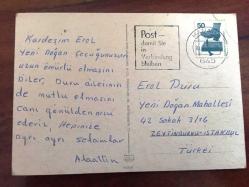 Kardeşim Erol
Yeni Doğan Çocuğunuzun
uzun ömürlü olmasını
Diler, Duru ailesinin
de mutlu olmasını
canı gönülden arzu
ederiz, Hepinize
ayrı ayrı selamlar
Alaattin
Post—
damit Sie
in
Verbindung
bleiben
50
645
Erol Duru
Yeni Doğan Mahallesi
42 Sokak 3/16
ZEYTİNBURNU-İSTANBUL
Türkei